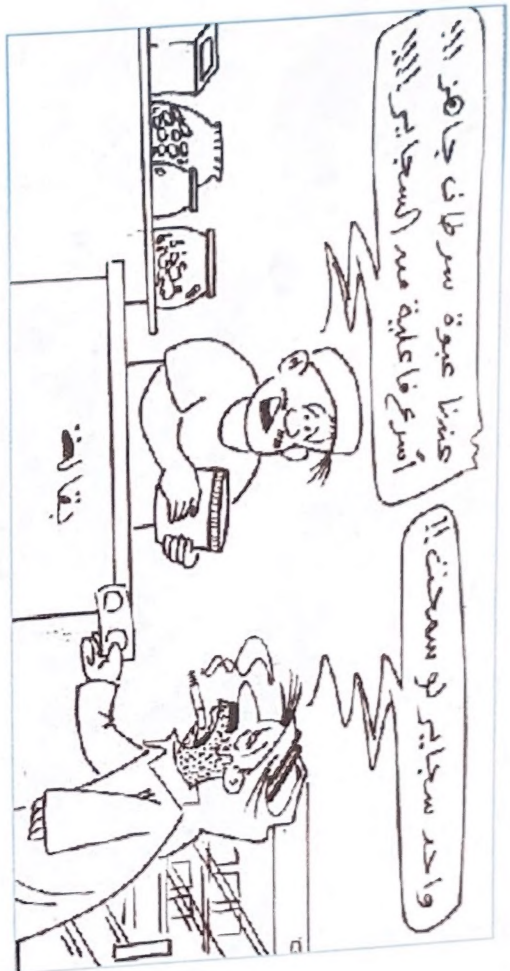 واحد سجاير لو سمحت !!
عندنا عبوة سرطان جاهز !!!
أسرع فاعلية من السجاير !!!!!
بقالة